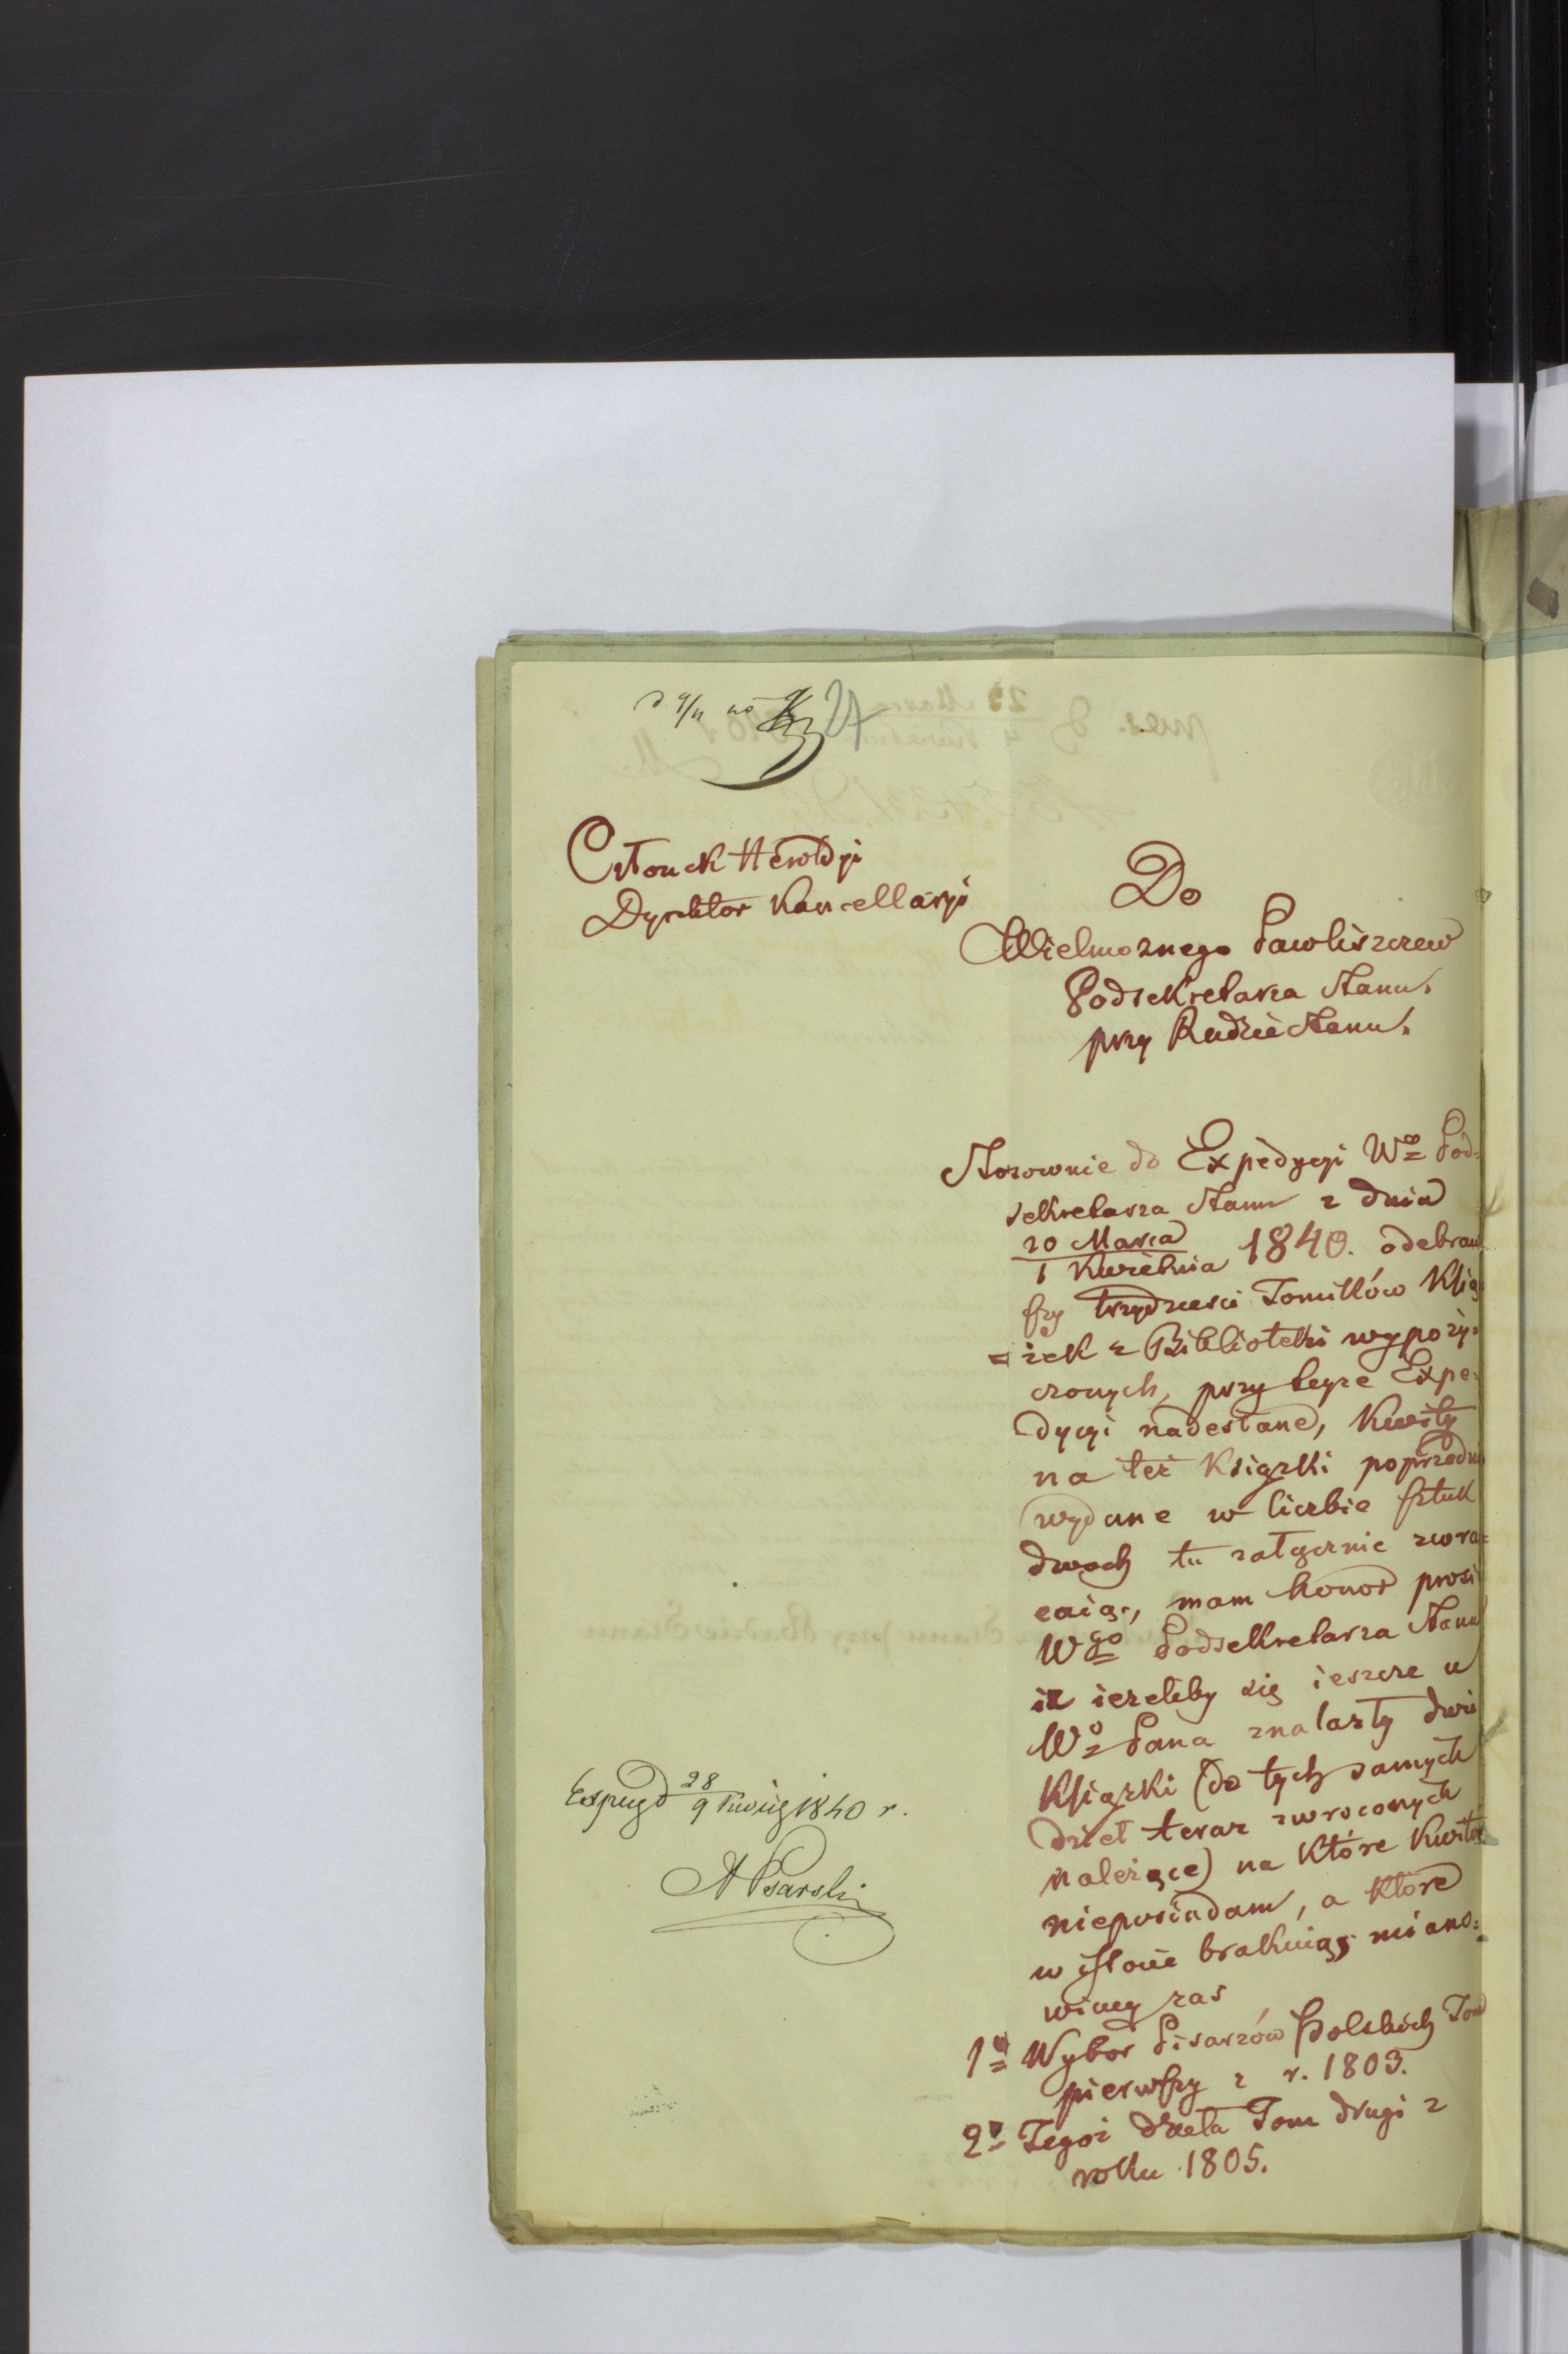 27
Członek Heroldyi
Dyrektor Kancellaryi
Do
Wielmożnego Pawliszczew
Podsekretarza Stanu
przy Radzie Stanu.
Stosownie do Expedycyi Wo Pod=
sekretarza Stanu z dnia
20 Marca
1 Kwietnia 1840. odebraw
szy trzydzieści Tomików Ksią
=żek z Biblioteki wypoży=
czonych, przy teyże Expe=
dycyi nadesłane, kwity
na też Książki poprzednio
wydane w liczbie sztuk
dwoch tu załącznie zwra=
caiąc, mam honor prosić
Wgo Podsekretarza Stanu
iż ieżeliby się ieszcze u
Wo Pana znalazły dwie
Książki (do tych samych
dzieł teraz zwroconych
należące) na które kwitów
nieposiadam, a które
w istocie brakuią, miano=
wicey zas
1o Wybor Pisarzów Polskich Tom
pierwszy z r. 1803.
2o Tegoż dzieła Tom drugi z
roku 1805.
Expug d 28
9 Kwie 1840 r.
APsarski